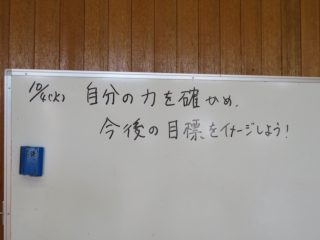 10/4(火) 自分の力を確かめ、
今後の目標をイメージしよう!